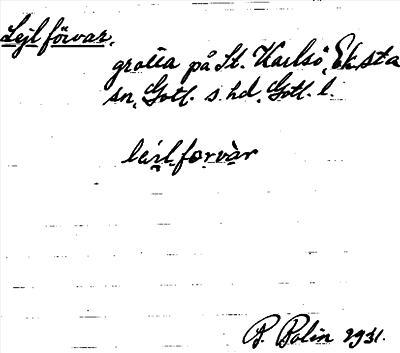 Lejlförvar.
grotta på St. Karlsö, Eksta
sn, Gotl. s. hd, Gotl. l.
lájlforvàr
B. Bolin 1931.